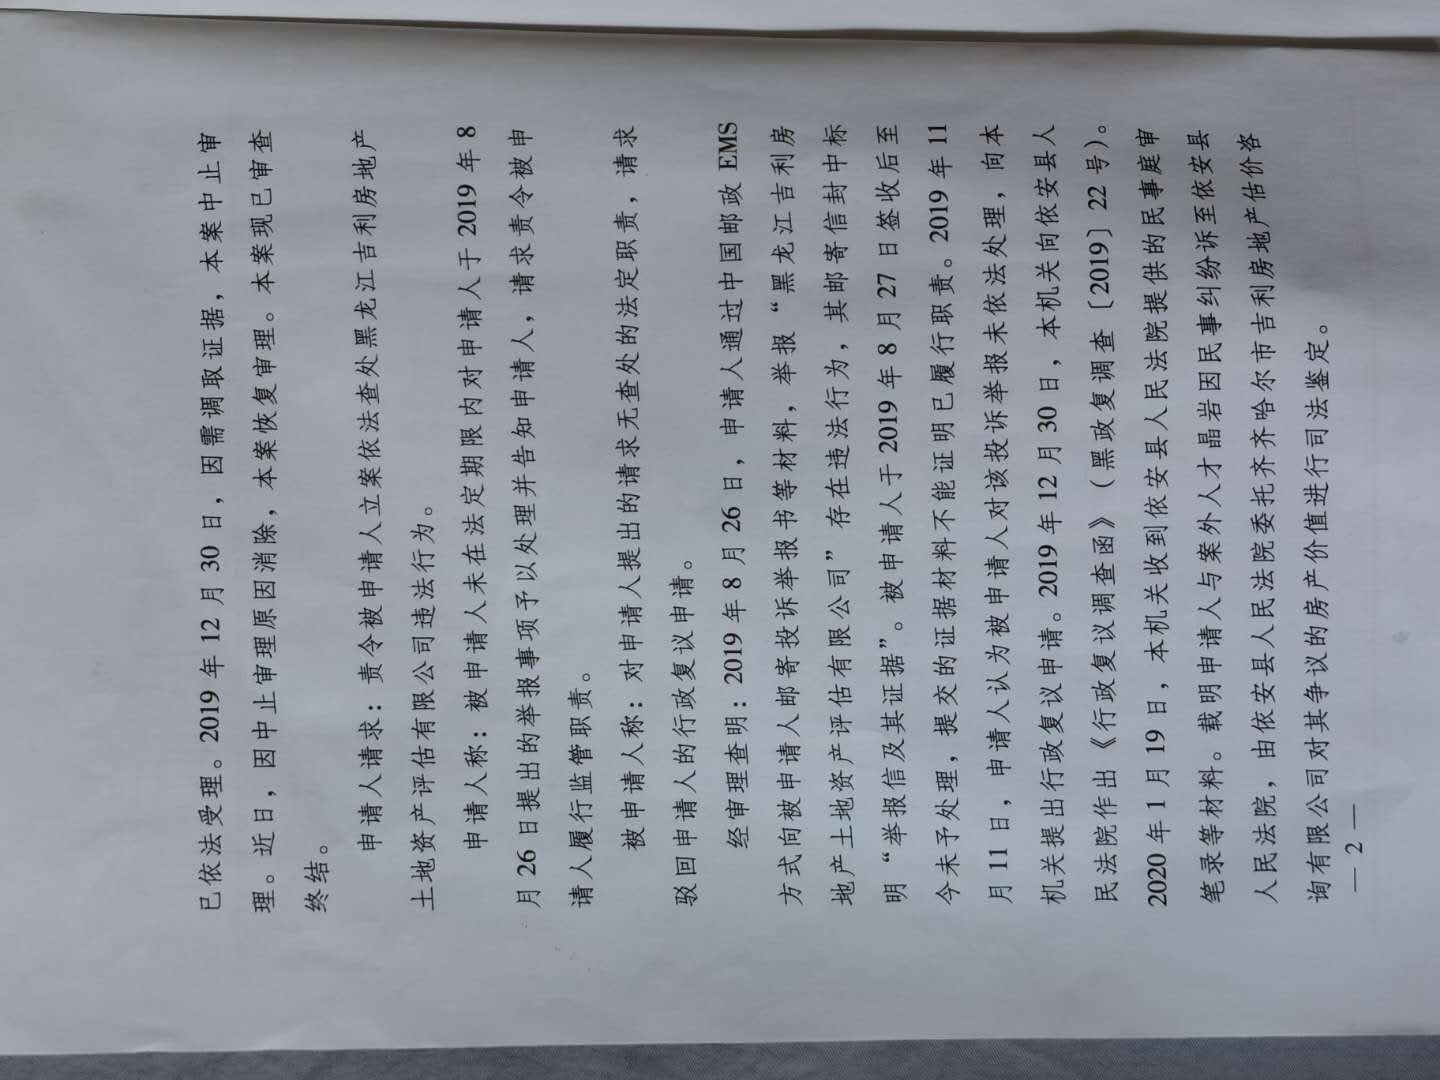 已依法受理。2019 年 12 月 30 日，因需调取证据，本案中止审
理。近日，因中止审理原因消除，本案恢复审理。本案现已审查
终结。
申请人请求：责令被申请人立案依法查处黑龙江吉利房地产
土地资产评估有限公司违法行为。
申请人称：被申请人未在法定期限内对申请人于 2019 年 8
月 26 日提出的举报事项予以处理并告知申请人，请求责令被申
请人履行监管职责。
被申请人称：对申请人提出的请求无查处的法定职责，请求
驳回申请人的行政复议申请。
经审理查明：2019 年 8 月 26 日，申请人通过中国邮政 EMS
方式向被申请人邮寄投诉举报书等材料，举报“黑龙江吉利房
地产土地资产评估有限公司”存在违法行为，其邮寄信封中标
明“举报信及其证据”。被申请人于 2019 年 8 月 27 日签收后至
今未予处理，提交的证据材料不能证明已履行职责。2019 年 11
月 11 日，申请人认为被申请人对该投诉举报未依法处理，向本
机关提出行政复议申请。2019 年 12 月 30 日，本机关向依安县人
民法院作出《行政复议调查函》（黑政复调查〔2019〕22 号）。
2020 年 1 月 19 日，本机关收到依安县人民法院提供的民事庭审
笔录等材料。载明申请人与案外人才晶岩因民事纠纷诉至依安县
人民法院，由依安县人民法院委托齐齐哈尔市吉利房地产估价咨
询有限公司对其争议的房产价值进行司法鉴定。
— 2 —